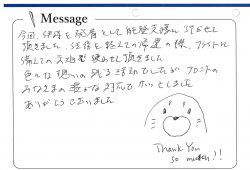 Message
今回、伊丹を発着として能登支援に行かせて
頂きました。活動を終えての帰還の際、フライトに
備えての前泊で使わせて頂きました
色々な想いの残る活動でしたがフロントの
みなさまの温かな対応でホッとしました
ありがとうございました
Thank You
so much!!